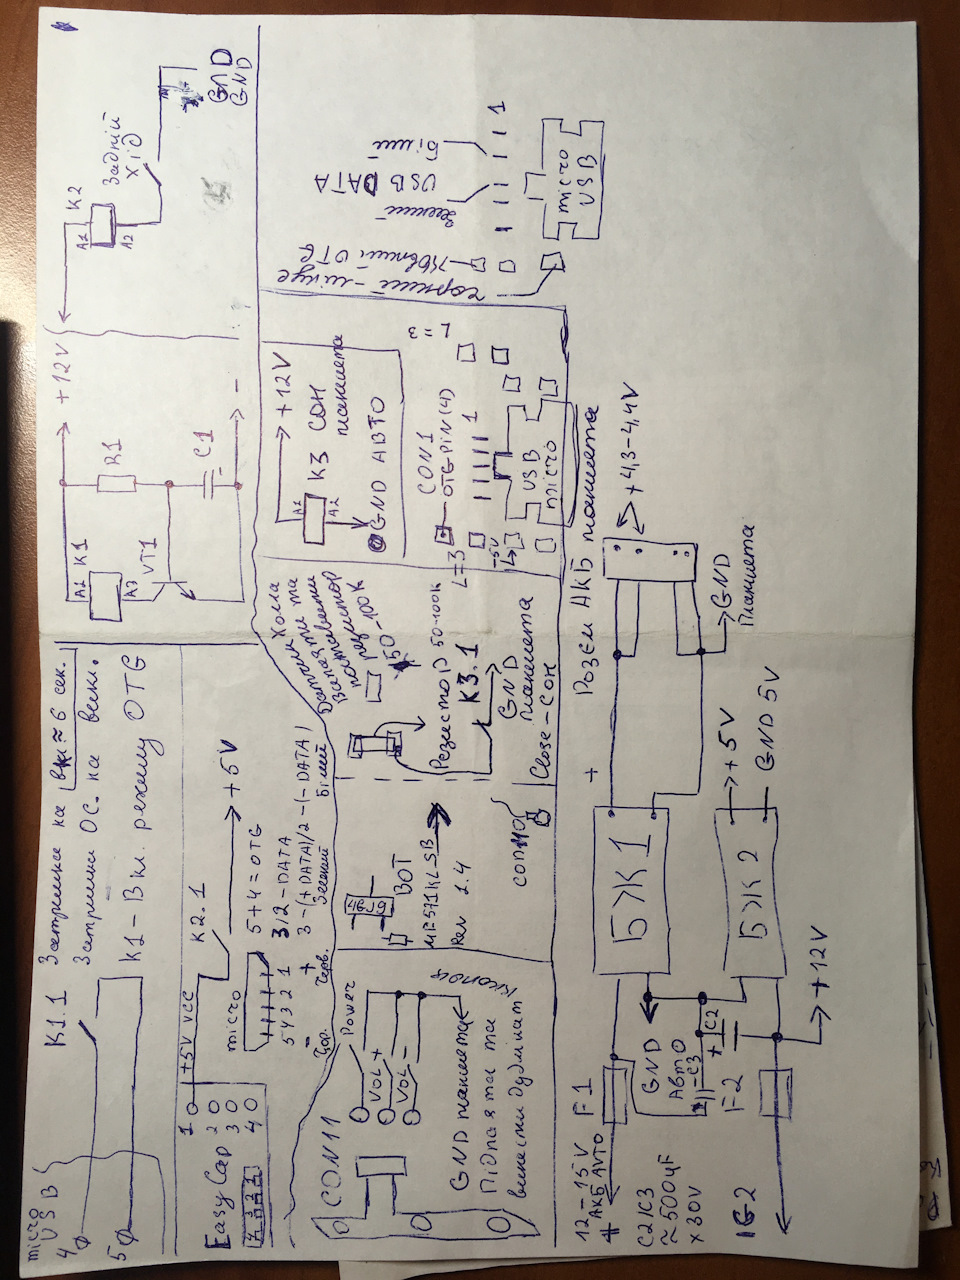 micro
USB
4
5
K1.1
Затримка на вкл ≈ 6 сек.
Затримки ОС. на викл.
K1 – Вкл. режиму OTG
A2
K1
A3
VT1
+12V
R1
C1
−
K2
A1
A2
Задній
хід
GND
GND
Easy Cap
1
2
3
4
+5V VCC
K2.1
+5V
micro
5 4 3 2 1
5+4=OTG
3/2-DATA
3-(+DATA)/2-(-DATA)
Зелений
Білий
−
+
Чор.
Черв.
CON11
Power
VOL+
VOL-
GND планшета
Підпаяти та
вивести дублікат
кнопок
BOT
MB571KL_SB
Rev 1.4
Датчик Холла
Випаяти та
Впаяти
резистор
50-100K
Резистор 50-100K
K3.1
GND
планшета
Close-Con
+12V
A1
A2
K3 CON
планшета
GND АВТО
CON1
OTG PIN(4)
L=3
L=3
-5V
1
USB
micro
чорний - мінус
OTG
USB DATA
1
micro
USB
12-15V
АКБ AVTO
+
F1
GND
Авто
C2
C3
C2/C3
≈500uF
x30V
F2
IG2
+12V
БЖ1
БЖ2
+5V
GND 5V
+
Розєм АКБ планшета
+4,3-4,4V
GND
Планшета